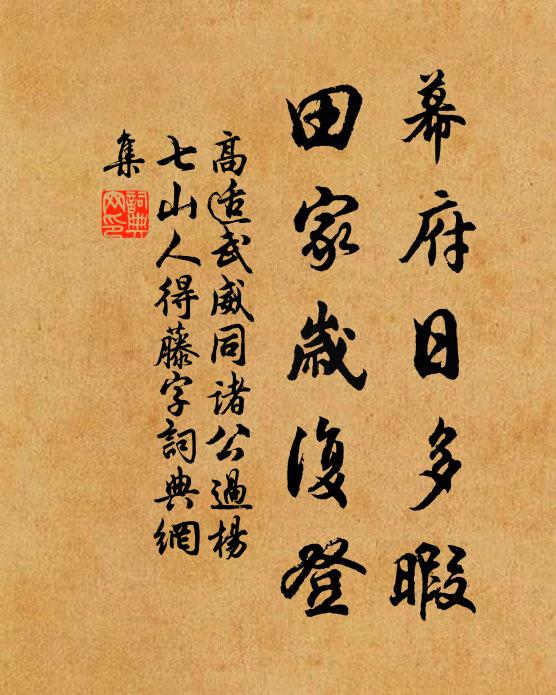 幕府日多暇
田家歲復登
高适武威同諸公過楊
七山人得藤字詞典網
集
詞典
网印